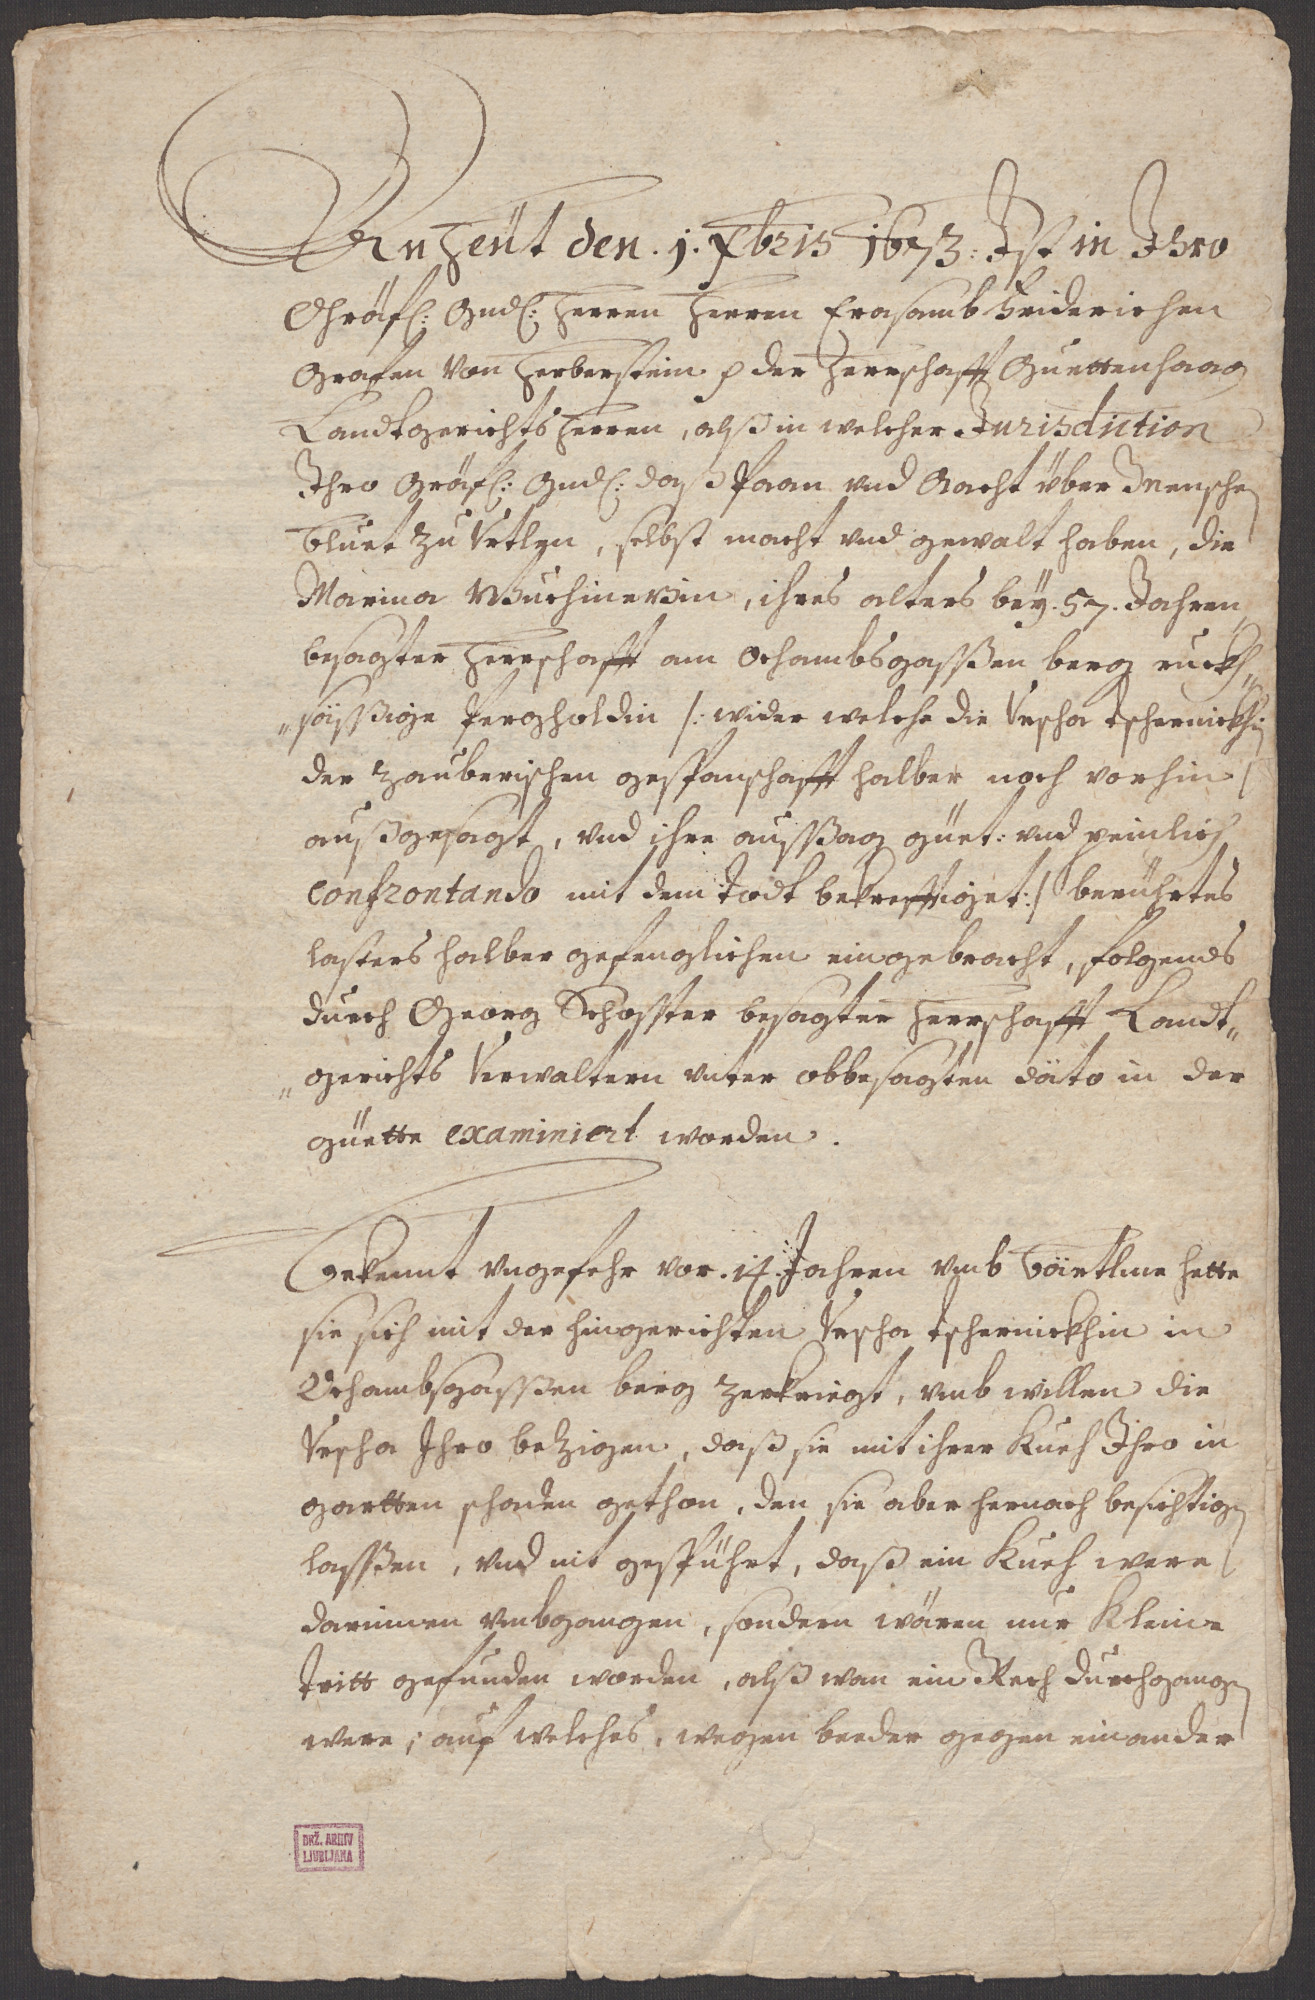 An Heüt den .1. Xbris 1673: Ist in Ihro
Ghräfl: Gnd: Herren Herren Erasamb Friderichen
Grafen von Herberstein p der Herrschafft Guettenhaag
Landtgerichts Herren, alß in welcher Jurisdiction
Ihro Gräfl: Gnd: daß Paan vnd Aacht über Mensche
Bluet zu Vrtlen, selbst macht vnd gewalt haben, die
Marina Wuchinezin, ihres alters bey .57. Jahren,
besagter Herrschafft am Ochambsgassen berg ruckh„
„sässige Pergholdin /: wider welche die Vrscha Tschernickhin
der Zauberischen gespanschafft halber noch vorhin
außgesagt, vnd ihre aussßag güet: vnd peinlich
confrontando mit dem Todt bekrefftiget :/ berührtes
lasters halber gefenglichen eingebracht, folgends
durch Georg Schosster besagter Herrschafft Landt„
„gerichts Verwaltern vnter obbesagten däto in der
güette examiniert worden.
Bekennt vngefehr vor .14. Jahren vmb Bärtlme hette
sie sich mit der hingerichten Vrscha Tschernickhin in
Ochambsgassßen berg zerkriegt, vmb willen die
Vrscha Ihro bezigen, daß sie mit ihrer Kueh Ihro in
gartten schaden gethon, den sie aber hernach besichtigen
lassßen, vnd nit gespührt, daß ein Kueh were
darinnen vmbgangen, sondern wären nur Kleine
Tritt gefunden worden, alß wan ein Rech durchgangen
were; auf welches, wegen beeder gegen einander
DRŽ. ARHIV
LJUBLJANA